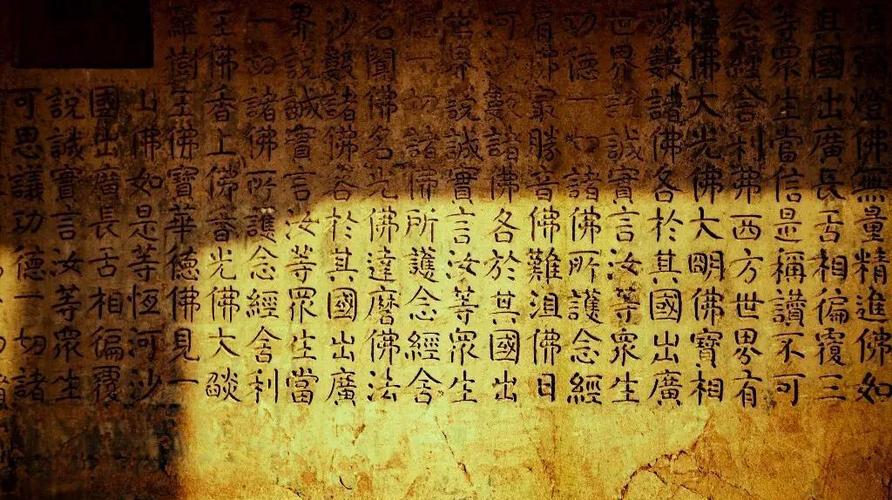 須彌燈佛無量精進佛如
其國出廣長舌相徧覆三
等眾生當信是稱讚不可
念經舍利弗西方世界有
幢佛大光佛大明佛寶相
沙數諸佛各於其國出廣
世界說誠實言汝等眾生
功德一切諸佛所護念經
肩佛最勝音佛難沮佛日
河沙數諸佛各於其國出
世界說誠實言汝等眾生
德一切諸佛所護念經舍
名聞佛名光佛達磨佛法
沙數諸佛各於其國出廣
界說誠實言汝等眾生當
一切諸佛所護念經舍利
王佛香上佛香光佛大燄
羅樹王佛寶華德佛見一
山佛如是等恆河沙
國出廣長舌相徧覆
說誠實言汝等眾生
可思議功德一切諸